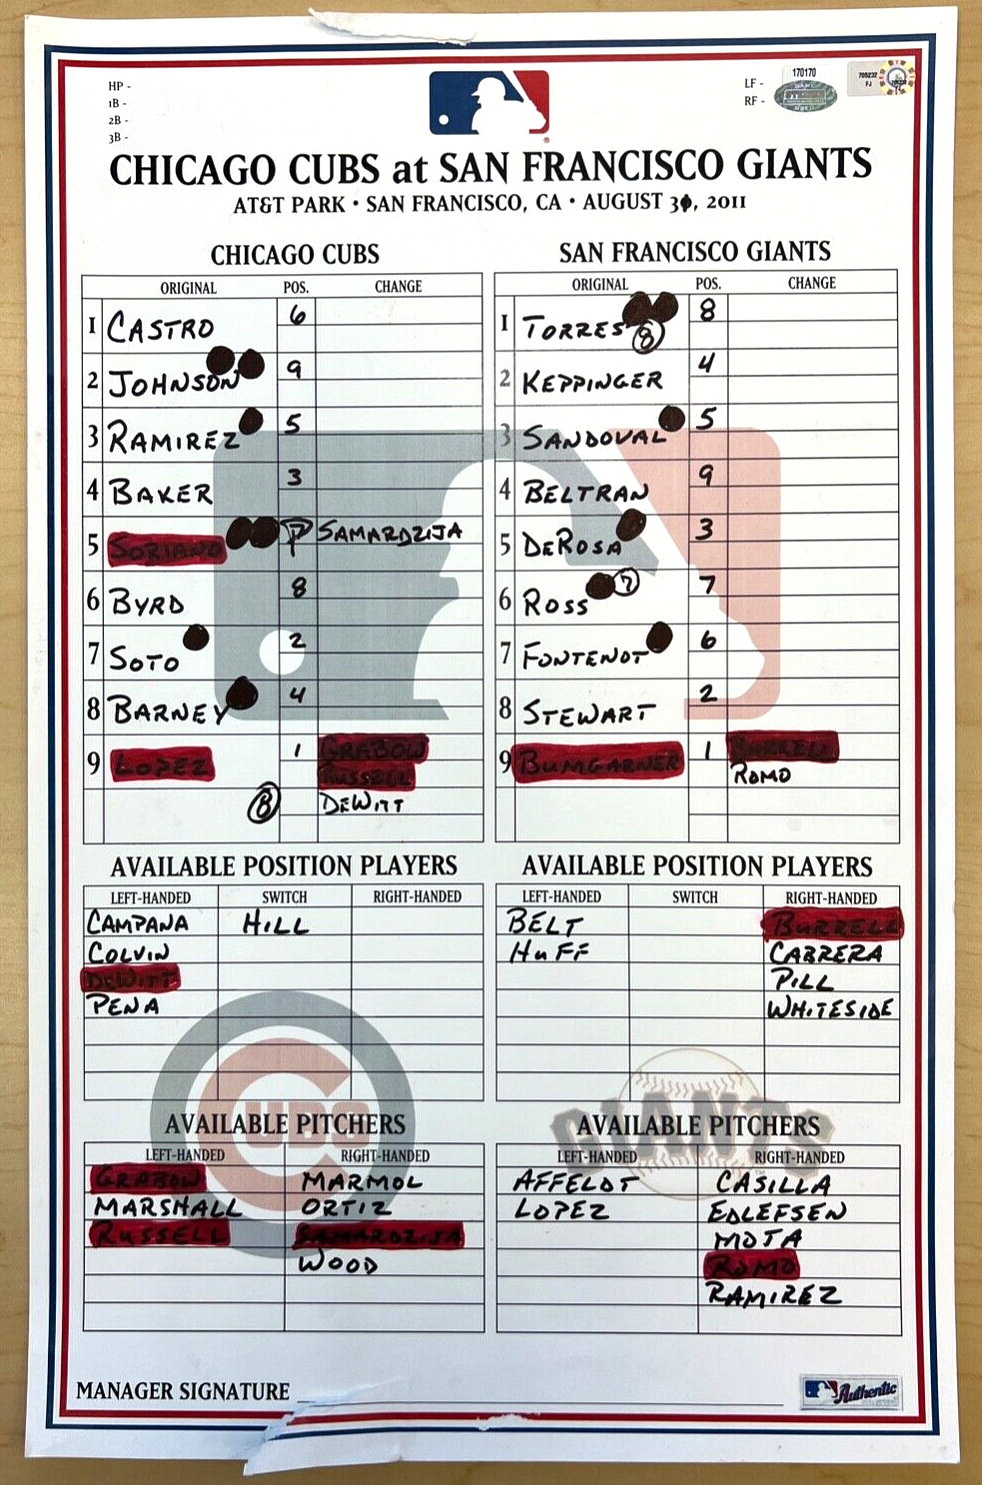 HP -
1B -
2B -
3B -
LF -
RF -
170170
705232
FJ
CHICAGO CUBS at SAN FRANCISCO GIANTS
AT&T PARK • SAN FRANCISCO, CA • AUGUST 30, 2011
CHICAGO CUBS
ORIGINAL POS. CHANGE
1 CASTRO 6
2 JOHNSON 9
3 RAMIREZ 5
4 BAKER 3
5 SORIANO P SAMARDZIJA
6 BYRD 8
7 SOTO 2
8 BARNEY 4
9 LOPEZ 1 GRABOW
RUSSELL
8 DEWITT
SAN FRANCISCO GIANTS
ORIGINAL POS. CHANGE
1 TORRES 8 8
2 KEPPINGER 4
3 SANDOVAL 5
4 BELTRAN 9
5 DEROSA 3
6 ROSS 7 7
7 FONTENOT 6
8 STEWART 2
9 BUMGARNER 1 BURRELL
ROMO
AVAILABLE POSITION PLAYERS
LEFT-HANDED SWITCH RIGHT-HANDED
CAMPANA HILL
COLVIN
DEWITT
PENA
AVAILABLE POSITION PLAYERS
LEFT-HANDED SWITCH RIGHT-HANDED
BELT BURRELL
HUFF CABRERA
PILL
WHITESIDE
CUBS
GIANTS
AVAILABLE PITCHERS
LEFT-HANDED RIGHT-HANDED
GRABOW MARMOL
MARSHALL ORTIZ
RUSSELL SAMARDZIJA
WOOD
AVAILABLE PITCHERS
LEFT-HANDED RIGHT-HANDED
AFFELDT CASILLA
LOPEZ EDLEFSEN
MOTA
ROMO
RAMIREZ
MANAGER SIGNATURE
Authentic